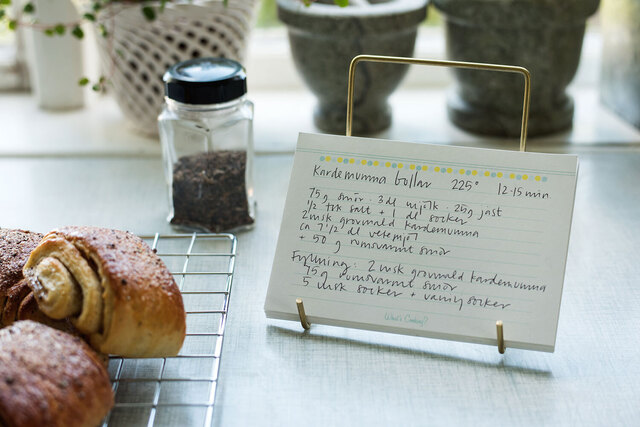 Kardemumma bullar 225° 12-15 min
75 g smör · 3 dl mjölk · 25g jäst
1/2 tsk salt + 1 dl socker
2 msk grovmald kardemumma
ca 7 1/2 dl vetemjöl
+ 50 g rumsvarmt smör
Fyllning: 2 msk grovmald kardemumma
75 g rumsvarmt smör
5 msk socker + vaniljsocker
What's Cooking?